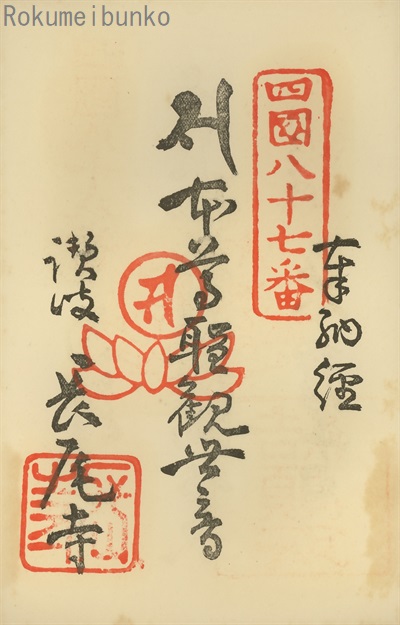 Rokumeibunko
四國八十七番
奉納経
本尊聖観世音
讃岐
長尾寺